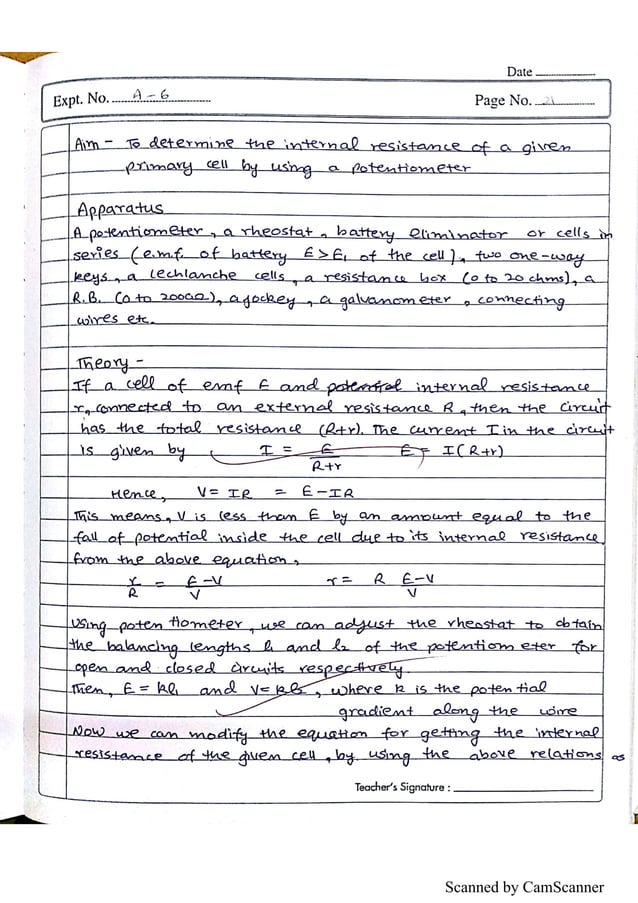 Date
Expt. No. A-6
Page No. 21
Aim - To determine the internal resistance of a given
primary cell by using a potentiometer
Apparatus
A potentiometer, a rheostat, battery eliminator or cells in
series (e.m.f. of battery E>E1 of the cell), two one-way
keys, a Lechlanche cells, a resistance box (0 to 20 ohms), a
R.B. (0 to 2000Ω), a jockey, a galvanometer, connecting
wires etc.
Theory -
If a cell of emf E and potential internal resistance
r, connected to an external resistance R, then the circuit
has the total resistance (R+r). The current I in the circuit
is given by I = E/R+r E = I(R+r)
Hence, V = IR = E-IR
This means, V is less than E by an amount equal to the
fall of potential inside the cell due to its internal resistance.
From the above equation,
r/R = E-V/V r = R E-V/V
Using potentiometer, we can adjust the rheostat to obtain
the balancing lengths l1 and l2 of the potentiometer for
open and closed circuits respectively.
Then, E = kl1 and V = kl2, where k is the potential
gradient along the wire
Now we can modify the equation for getting the internal
resistance of the given cell, by using the above relations as
Teacher's Signature :
Scanned by CamScanner